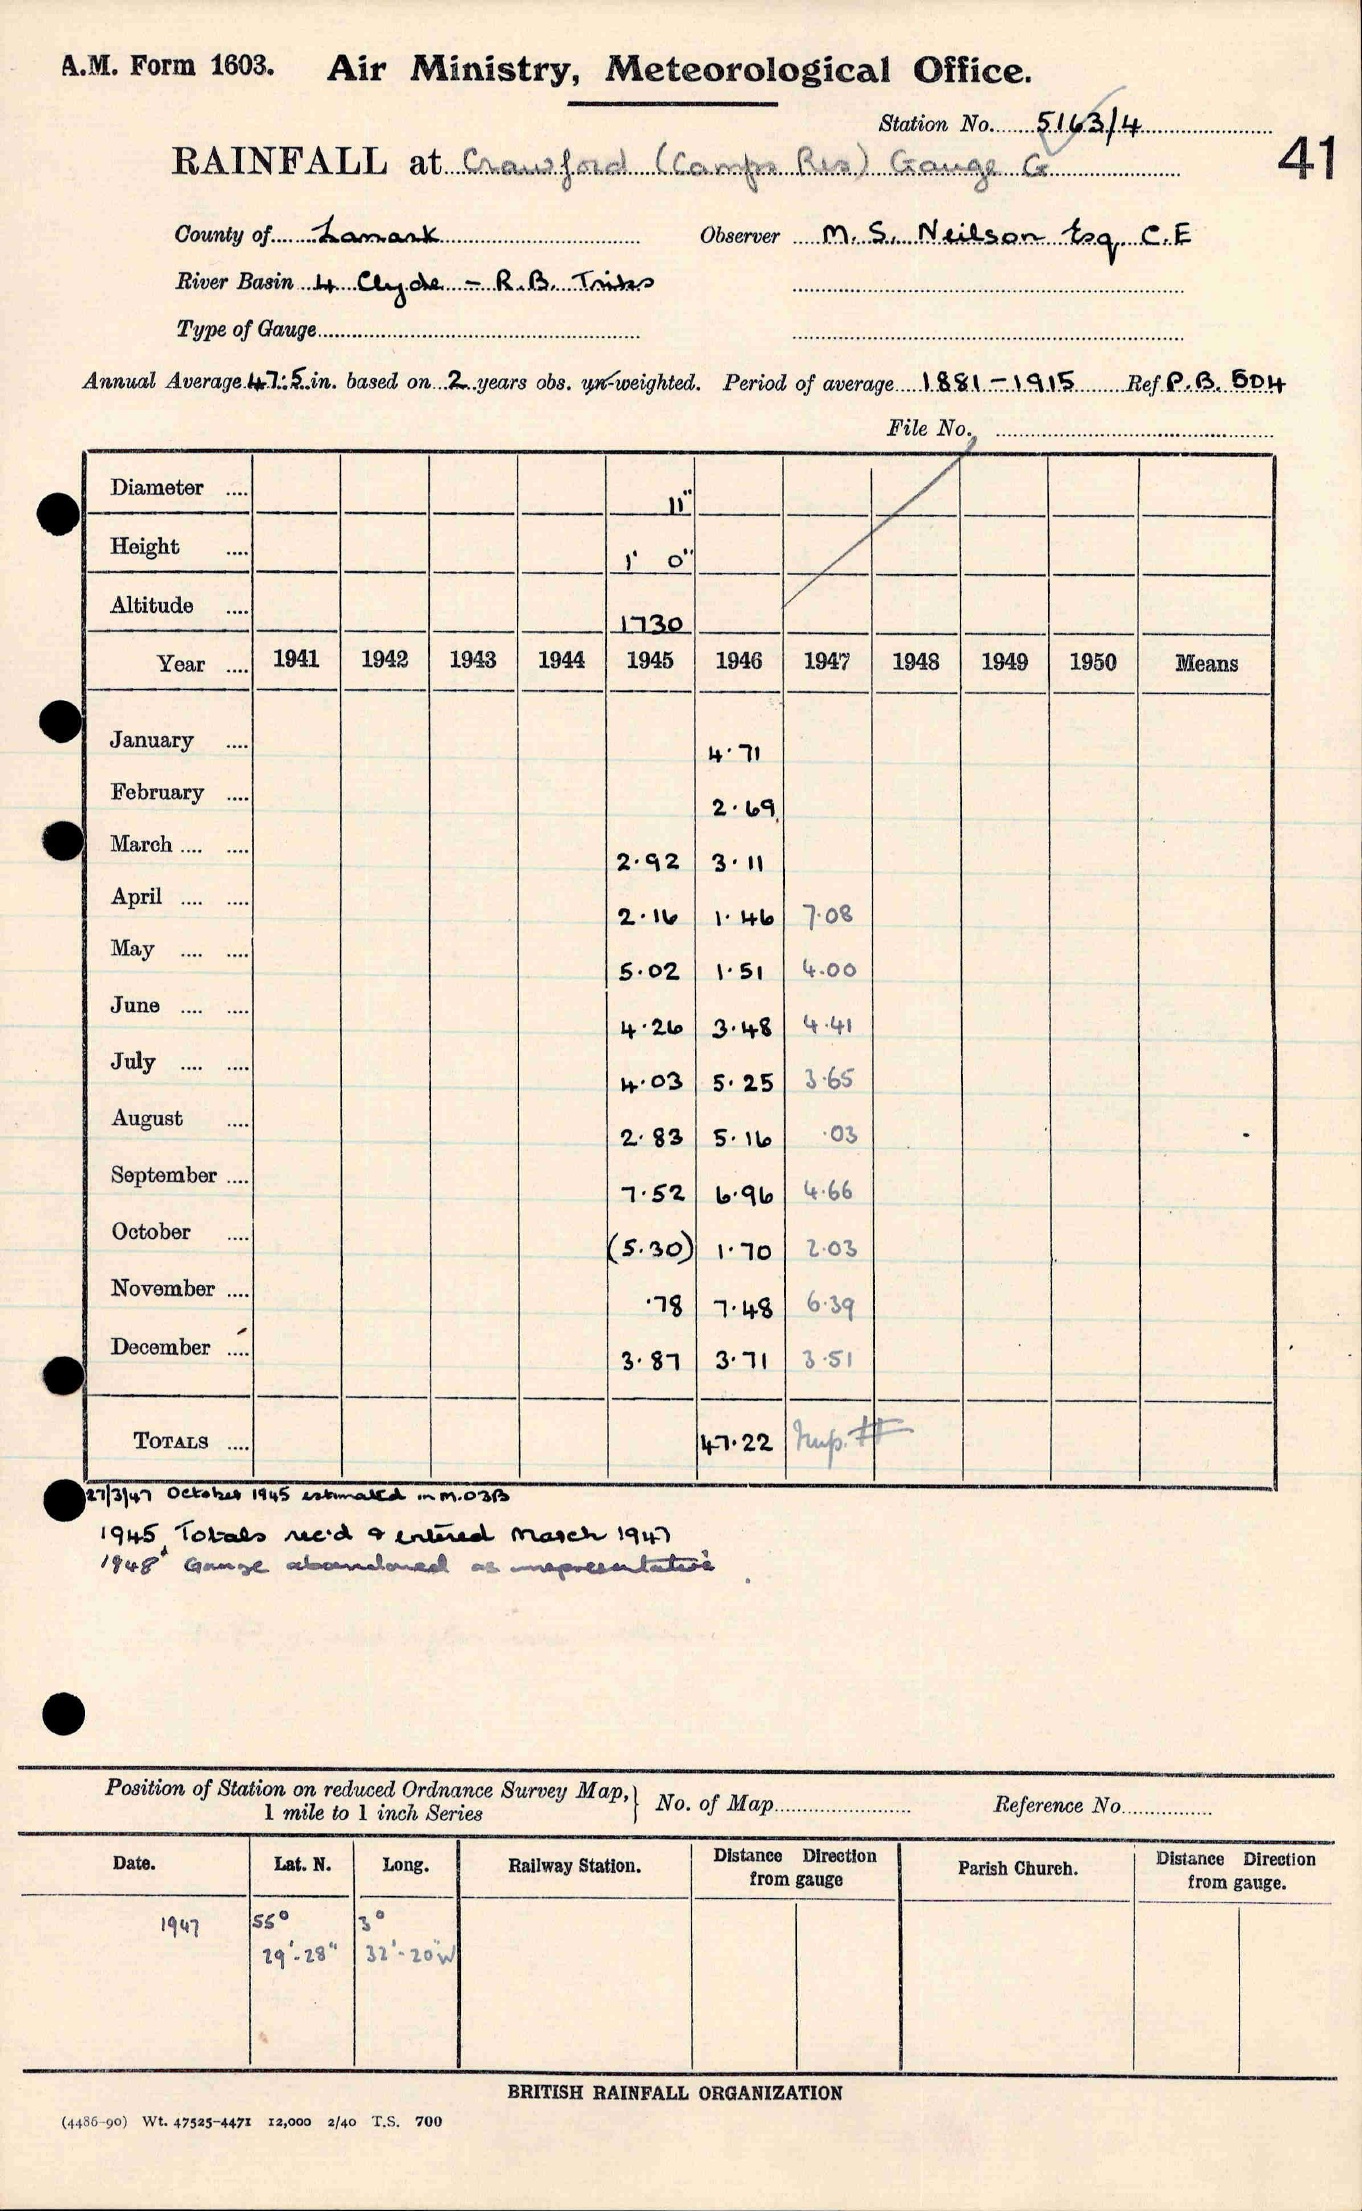 A.M. Form 1603. Air Ministry, Meteorological Office.
Station No. 5163/4
41
RAINFALL at Crawford (Camps Res) Gauge G
County of Lanark Observer M. S. Neilson Esq. C.E
River Basin 4 Clyde – R.B. Tribs
Type of Gauge
Annual Average 47.5 in. based on 2 years obs. un-weighted. Period of average 1881–1915 Ref P.B. 504
File No.
Diameter .... 11"
Height .... 1' 0"
Altitude .... 1730
Year .... 1941 1942 1943 1944 1945 1946 1947 1948 1949 1950 Means
January .... 4.71
February .... 2.69
March .... .... 2.92 3.11
April .... .... 2.16 1.46 7.08
May .... .... 5.02 1.51 4.00
June .... .... 4.26 3.48 4.41
July .... .... 4.03 5.25 3.65
August .... 2.83 5.16 .03
September .... 7.52 6.96 4.66
October .... (5.30) 1.70 2.03
November .... .78 7.48 6.39
December .... 3.87 3.71 3.51
TOTALS .... 47.22 Imp.
27/3/47 October 1945 estimated in M.O3B
1945 Totals rec'd & entered March 1947
1948 Gauge abandoned as unrepresentative
Position of Station on reduced Ordnance Survey Map, } No. of Map Reference No.
1 mile to 1 inch Series
Date. Lat. N. Long. Railway Station. Distance Direction from gauge Parish Church. Distance Direction from gauge.
1947 55° 3°
29'-28" 32'-20"W
BRITISH RAINFALL ORGANIZATION
(4486-90) Wt. 47525-4471 12,000 2/40 T.S. 700